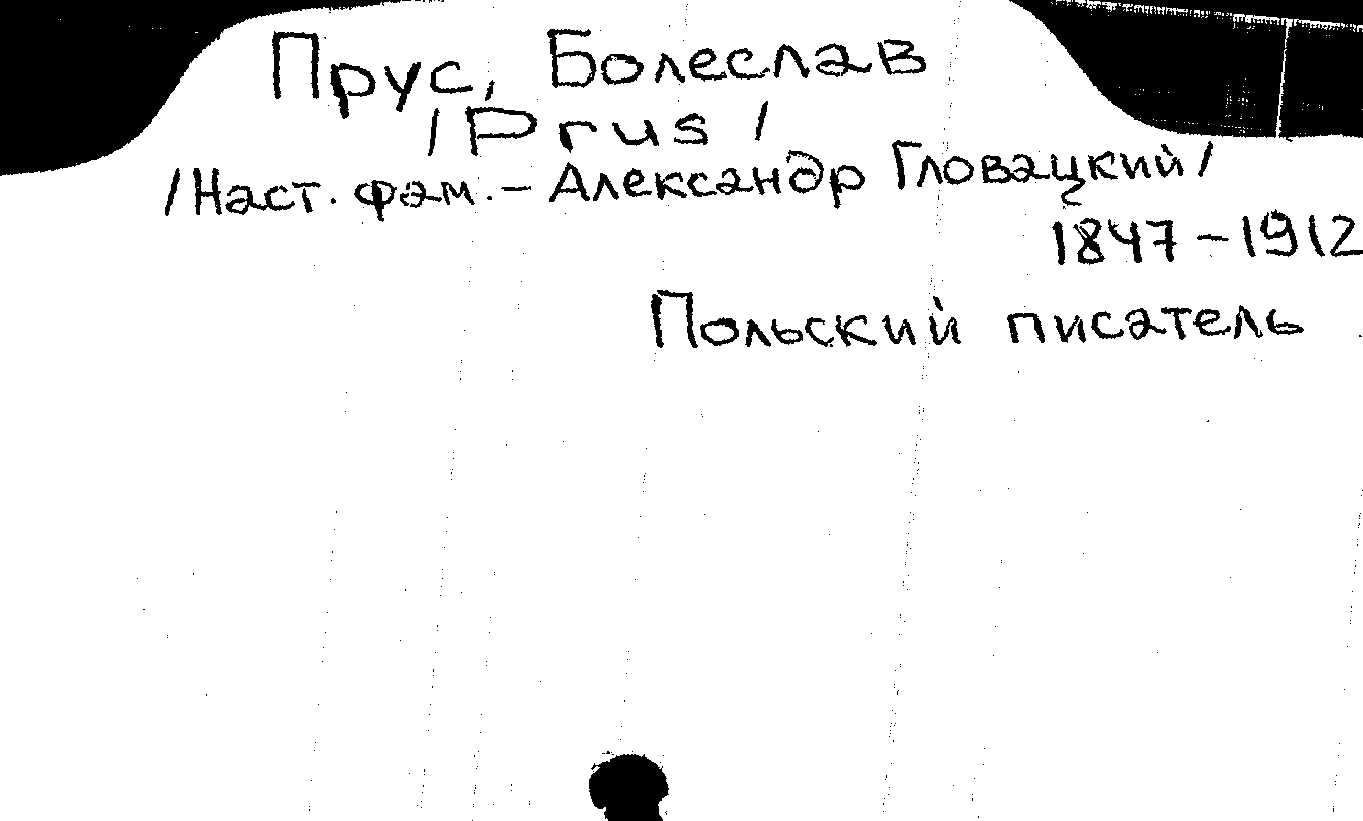 Прус, Болеслав
/Prus/
/Наст. фам. - Александр Гловацкий/
1847-1912
Польский писатель